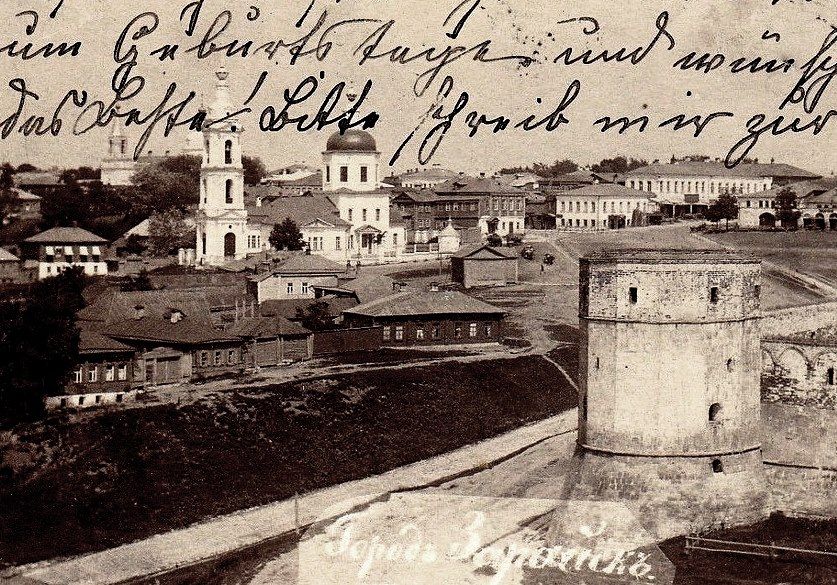 zum Geburtstage und wünsche
das Beste! Bitte schreib mir zur
Городъ Зарайскъ